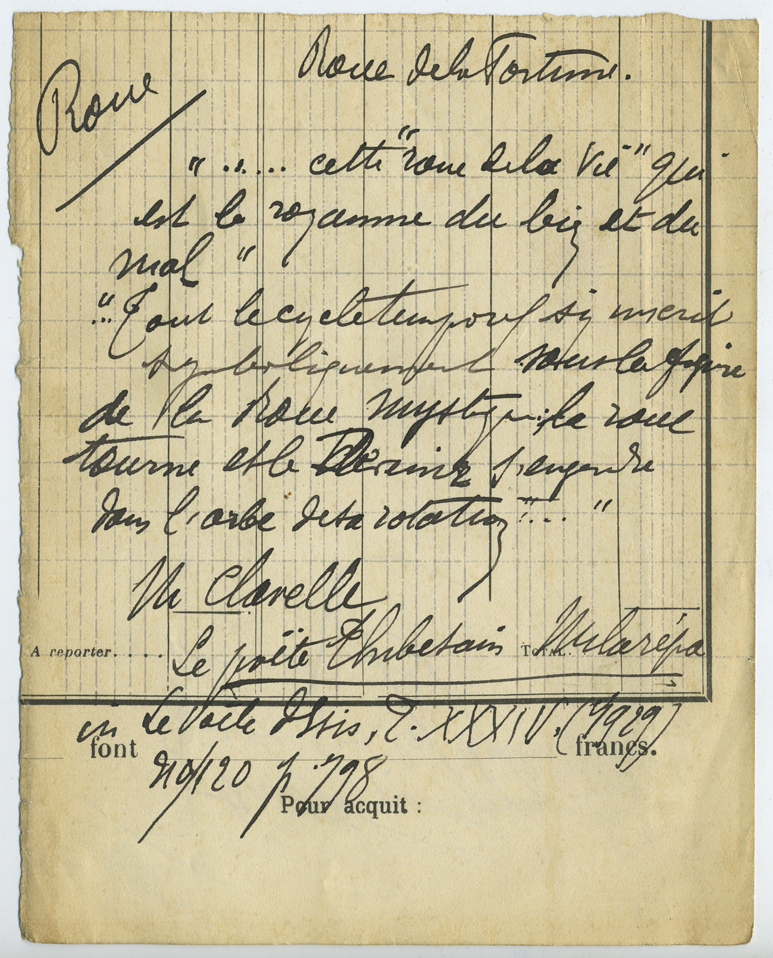 Roue de la Fortune.
Roue
" ..... cette "roue de la Vie" qui
est le royaume du bien et du
mal "
"Tout le cycle temporel s'y inscrit
symboliquement sous la figure
de la Roue mystique; la roue
tourne et le Devenir s'engendre
dans l'orbe de sa rotation"... "
M Clavelle
A reporter..... Le poète Thibétain TOTAL Milarépa
in Le Voile d'Isis, T. XXXIV. (1929)
font francs.
n° 120 p. 798
Pour acquit :